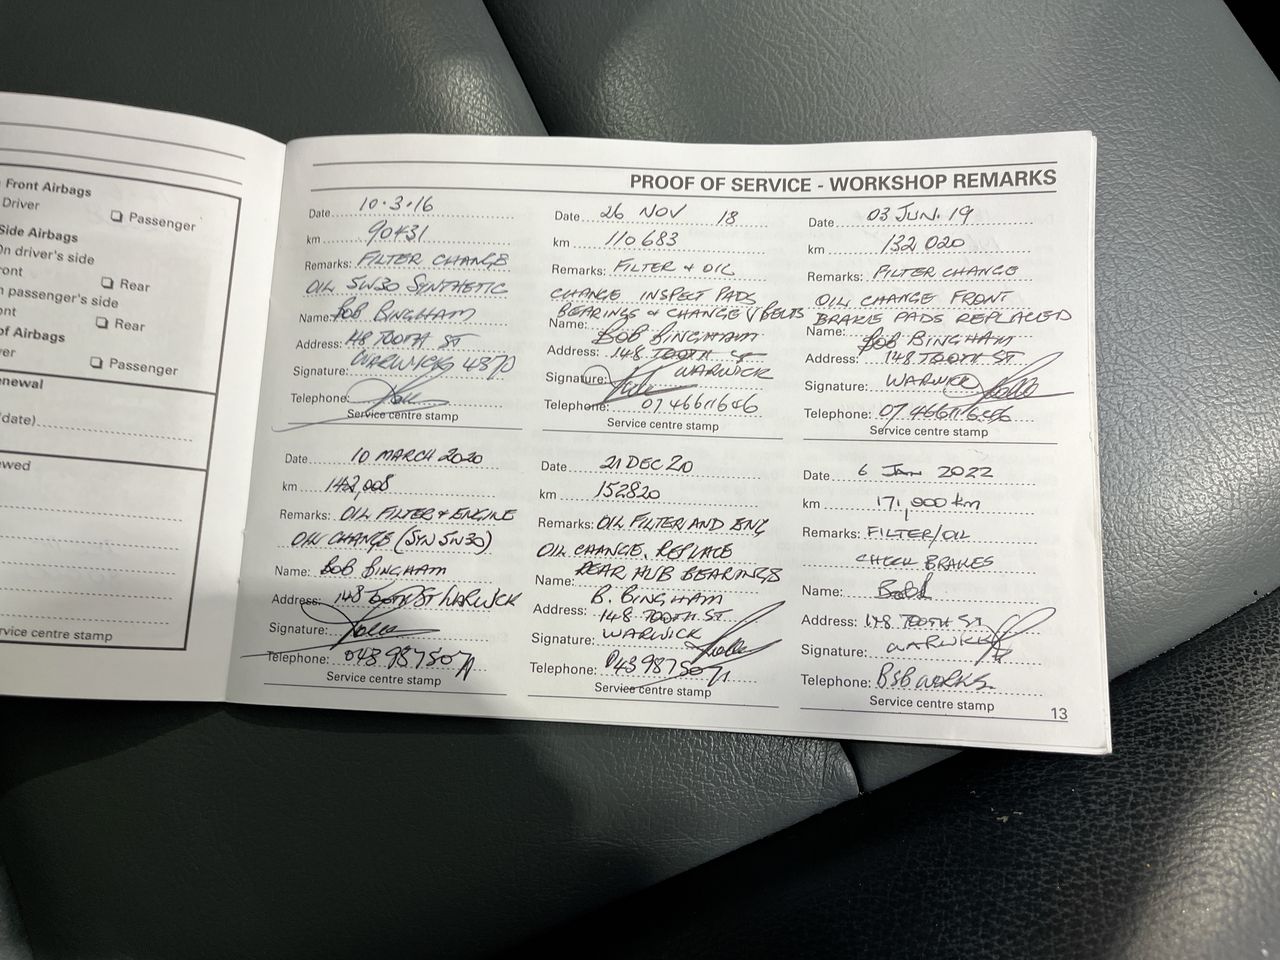 Front Airbags
Driver
Passenger
Side Airbags
On driver's side
ront
Rear
n passenger's side
nt
Rear
of Airbags
ver
Passenger
enewal
date)
wed
rvice centre stamp
PROOF OF SERVICE - WORKSHOP REMARKS
Date 10.3.16
km 90431
Remarks: FILTER CHANGE
OIL 5W30 SYNTHETIC
Name: BOB BINGHAM
Address: 148 TOOTH ST
Signature: WARWICK 4370
Telephone:
Service centre stamp
Date 26 NOV 18
km 110683
Remarks: FILTER + OIL
CHANGE INSPECT PADS
BEARINGS & CHANGE V BELTS
Name: BOB BINGHAM
Address: 148 TOOTH ST
Signature: WARWICK
Telephone: 07 46611646
Service centre stamp
Date 03 JUN. 19
km 132 020
Remarks: FILTER CHANGE
OIL CHANGE FRONT
BRAKE PADS REPLACED
Name: BOB BINGHAM
Address: 148 TOOTH ST
Signature: WARWICK
Telephone: 07
Service centre stamp
Date 10 MARCH 2020
km 142,008
Remarks: OIL FILTER + ENGINE
OIL CHANGE (SYN 5N30)
Name: BOB BINGHAM
Address: 148 TOOTH ST WARWICK
Signature:
Telephone: 043 987507
Service centre stamp
Date 21 DEC 20
km 152820
Remarks: OIL FILTER AND ENG
OIL CHANGE. REPLACE
REAR HUB BEARINGS
Name: B. BINGHAM
Address: 148 TOOTH ST
Signature: WARWICK
Telephone: 043 987507
Service centre stamp
Date 6 JAN 2022
km 171,000 km
Remarks: FILTER/OIL
CHECK BRAKES
Name: Bob
Address: 148 TOOTH ST
Signature: WARWICK
Telephone: BSB WORKS.
Service centre stamp
13